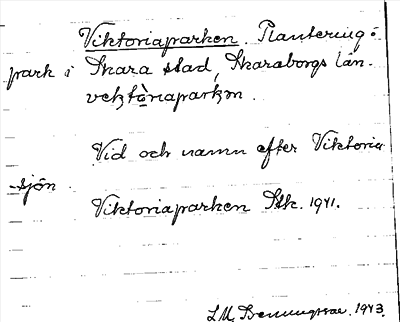 Viktoriaparken. Plantering o
park i Skara stad, Skaraborgs län.
vektòriaparkən.
Vid och namn efter Viktoria
-sjön
Viktoriaparken Stk. 1941.
1943.